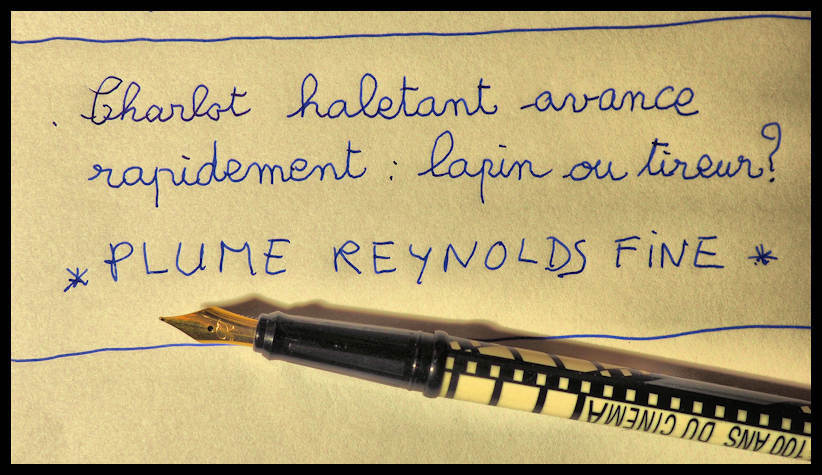 Charlot haletant avance
rapidement : lapin ou tireur?
* PLUME REYNOLDS FINE *
100 ANS DU CINEMA